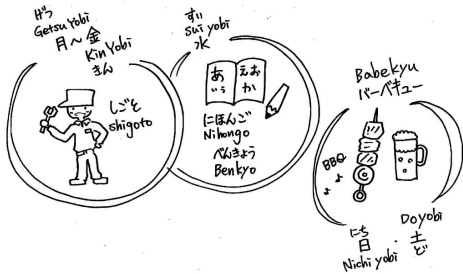 げつ
Getsu Yobi
月〜金
Kin Yobi
きん
しごと
shigoto
すい
sui yobi
水
あ
いう
えお
か
にほんご
Nihongo
べんきょう
Benkyo
Babekyu
バーベキュー
BBQ
♪
♪
にち
日
Nichi yobi
・
Doyobi
土
ど